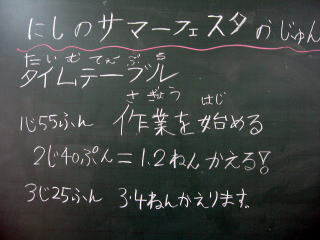 にしのサマーフェスタのじゅん
たいむてーぶる
タイムテーブル
さぎょう はじ
1じ55ふん 作業を始める
2じ40ぷん=1.2ねんかえる!
3じ25ふん 3.4ねんかえります。